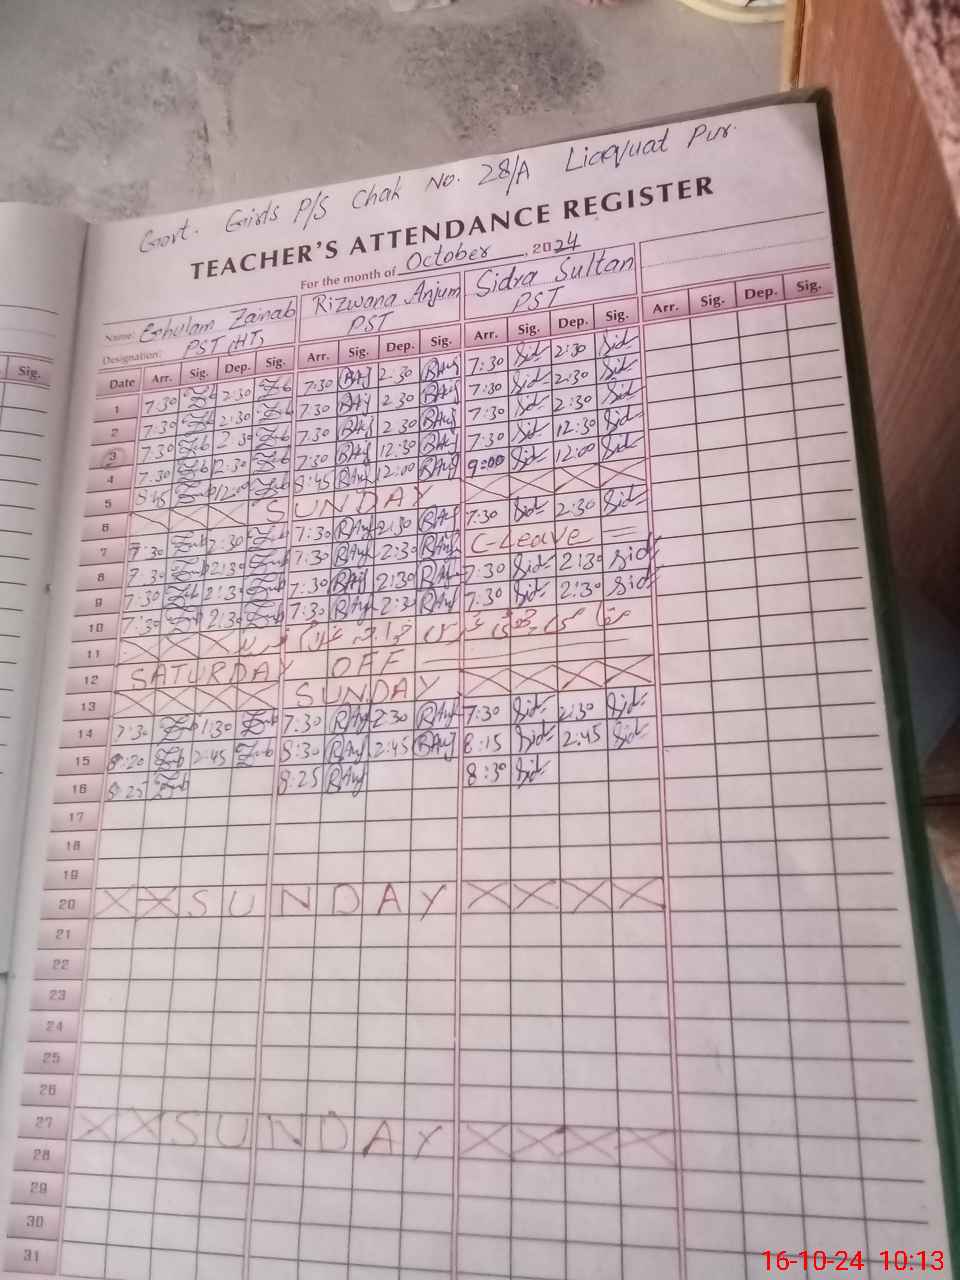 Govt. Girls P/S Chak No. 28/A Liaquat Pur.
TEACHER'S ATTENDANCE REGISTER
For the month of October, 2024
Name: Ghulam Zainab Rizwana Anjum Sidra Sultan
Designation: PST (HT) PST PST
Sig.
Date Arr. Sig. Dep. Sig. Arr. Sig. Dep. Sig. Arr. Sig. Dep. Sig. Arr. Sig. Dep. Sig.
1 7:30 Znb 2:30 Znb 7:30 RAnj 2:30 RAnj 7:30 Sid 2:30 Sid
2 7:30 Znb 2:30 Znb 7:30 RAnj 2:30 RAnj 7:30 Sid 2:30 Sid
3 7:30 Znb 2:30 Znb 7:30 RAnj 2:30 RAnj 7:30 Sid 2:30 Sid
4 7:30 Znb 12:30 Znb 7:30 RAnj 12:30 RAnj 7:30 Sid 12:30 Sid
5 8:45 Znb 12:00 Znb 8:45 RAnj 12:00 RAnj 9:00 Sid 12:00 Sid
6 SUNDAY
7 7:30 Znb 2:30 Znb 7:30 RAnj 2:30 RAnj 7:30 Sid 2:30 Sid
8 7:30 Znb 2:30 Znb 7:30 RAnj 2:30 RAnj C-Leave
9 7:30 Znb 2:30 Znb 7:30 RAnj 2:30 RAnj 7:30 Sid 2:30 Sid
10 7:30 Znb 2:30 Znb 7:30 RAnj 2:30 RAnj 7:30 Sid 2:30 Sid
11
12 SATURDAY OFF
13 SUNDAY
14 7:30 Znb 1:30 Znb 7:30 RAnj 2:30 RAnj 7:30 Sid 2:30 Sid
15 8:20 Znb 2:45 Znb 8:30 RAnj 2:45 RAnj 8:15 Sid 2:45 Sid
16 8:25 Znb 8:25 RAnj 8:30 Sid
17
18
19
20 SUNDAY
21
22
23
24
25
26
27 SUNDAY
28
29
30
31
16-10-24 10:13